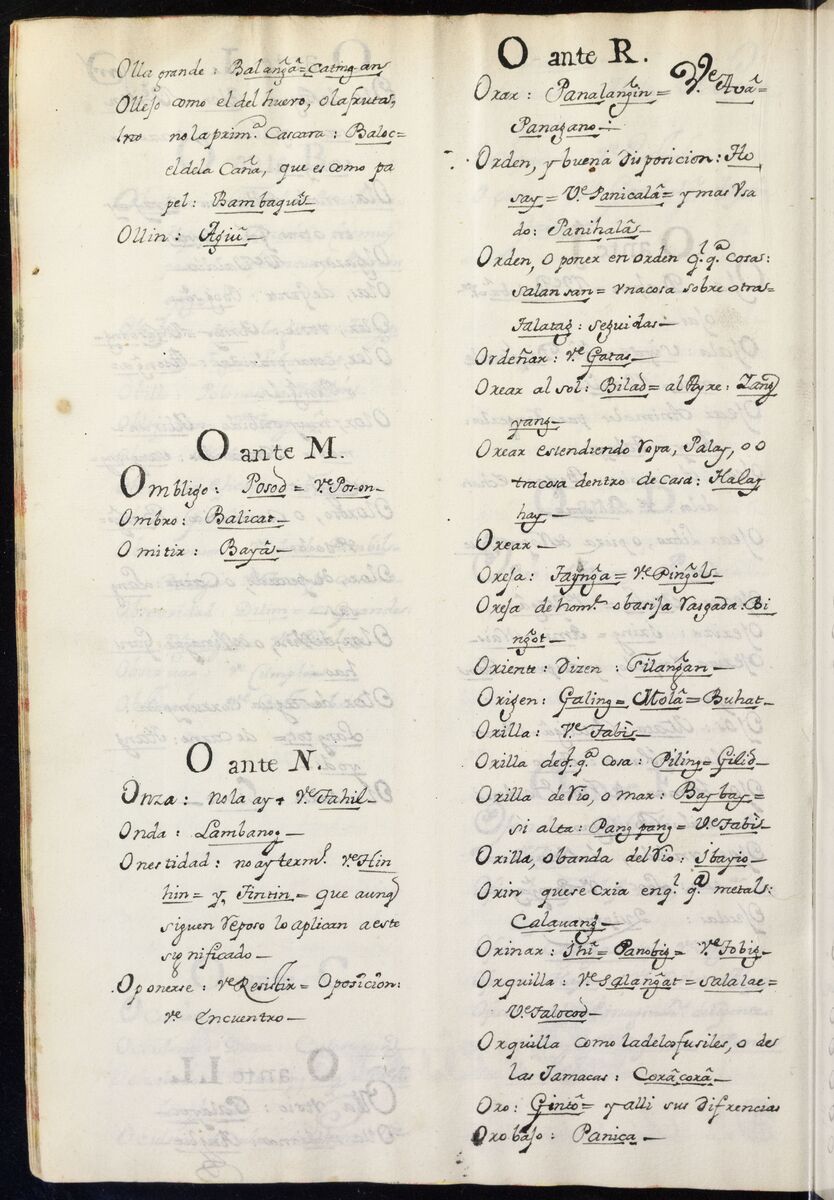 Olla grande: Balang̃ã = Catng-an
Ollejo como el del huevo, o la frutas,
no la prim.ª Cascara: Baloc =
el dela Caña, que es como pa
pel: Bambaquĩs
Ollin: Agiũ
O ante M.
Ombligo: Posod = Vᵉ Poson
Ombro: Balicat
Omitir: Bayã
O ante N.
Onza: no la ay + Vᵉ Tahil
Onda: Lambanog
Onestidad: no ay term.º Vᵉ Hin
hin = y, Tintin = que aunq̃
siguen Reposo lo aplican a este
significado
Oponerse: Vᵉ Resistir = Oposicion:
Vᵉ encuentro
O ante R.
Orar: Panalang̃in = Vᵉ Avã =
Panagano
Orden, y buena disposicion: Ho
say = Vᵉ Panicalã = y mas Vsa
do: Panihalã
Orden, o poner en orden q.l q.ª cosas:
salansan = Vna cosa sobre otras =
Talatag: seguidas
Ordeñar: Vᵉ Gatas
Orear al sol: Bilad = al Ayre: Zang
yang
Orear estendiendo Ropa, Palay, o o
tra cosa dentro de casa: Halay
hay
Orear
Oreja: Tayng̃a = Vᵉ Ping̃ols
Oreja de hom.e o basija Rasgada: Bi
ng̃ot
Oriente: Dizen: Silang̃an
Origen: Galing = Molã = Buhat
Orilla: Vᵉ Tabĩs
Orilla de q.l q.ª Cosa: Piling = Gilid
Orilla de Rio, o mar: Baybay =
si alta: Pang pang = Vᵉ Tabĩs
Orilla, o banda del Rio: Ibayio
Orin que se cria en q.l q.ª metal:
Calauang
Orinar: Ihĩ = Panobig = Vᵉ Tobig
Orquilla: Vᵉ Salang̃at = salalac =
Vᵉ Talocod
Orquilla como la de los fusiles, o de
las Jamacas: Corãcorã
Oro: Gintõ = y alli sus Difrencias
Oro bajo: Panica